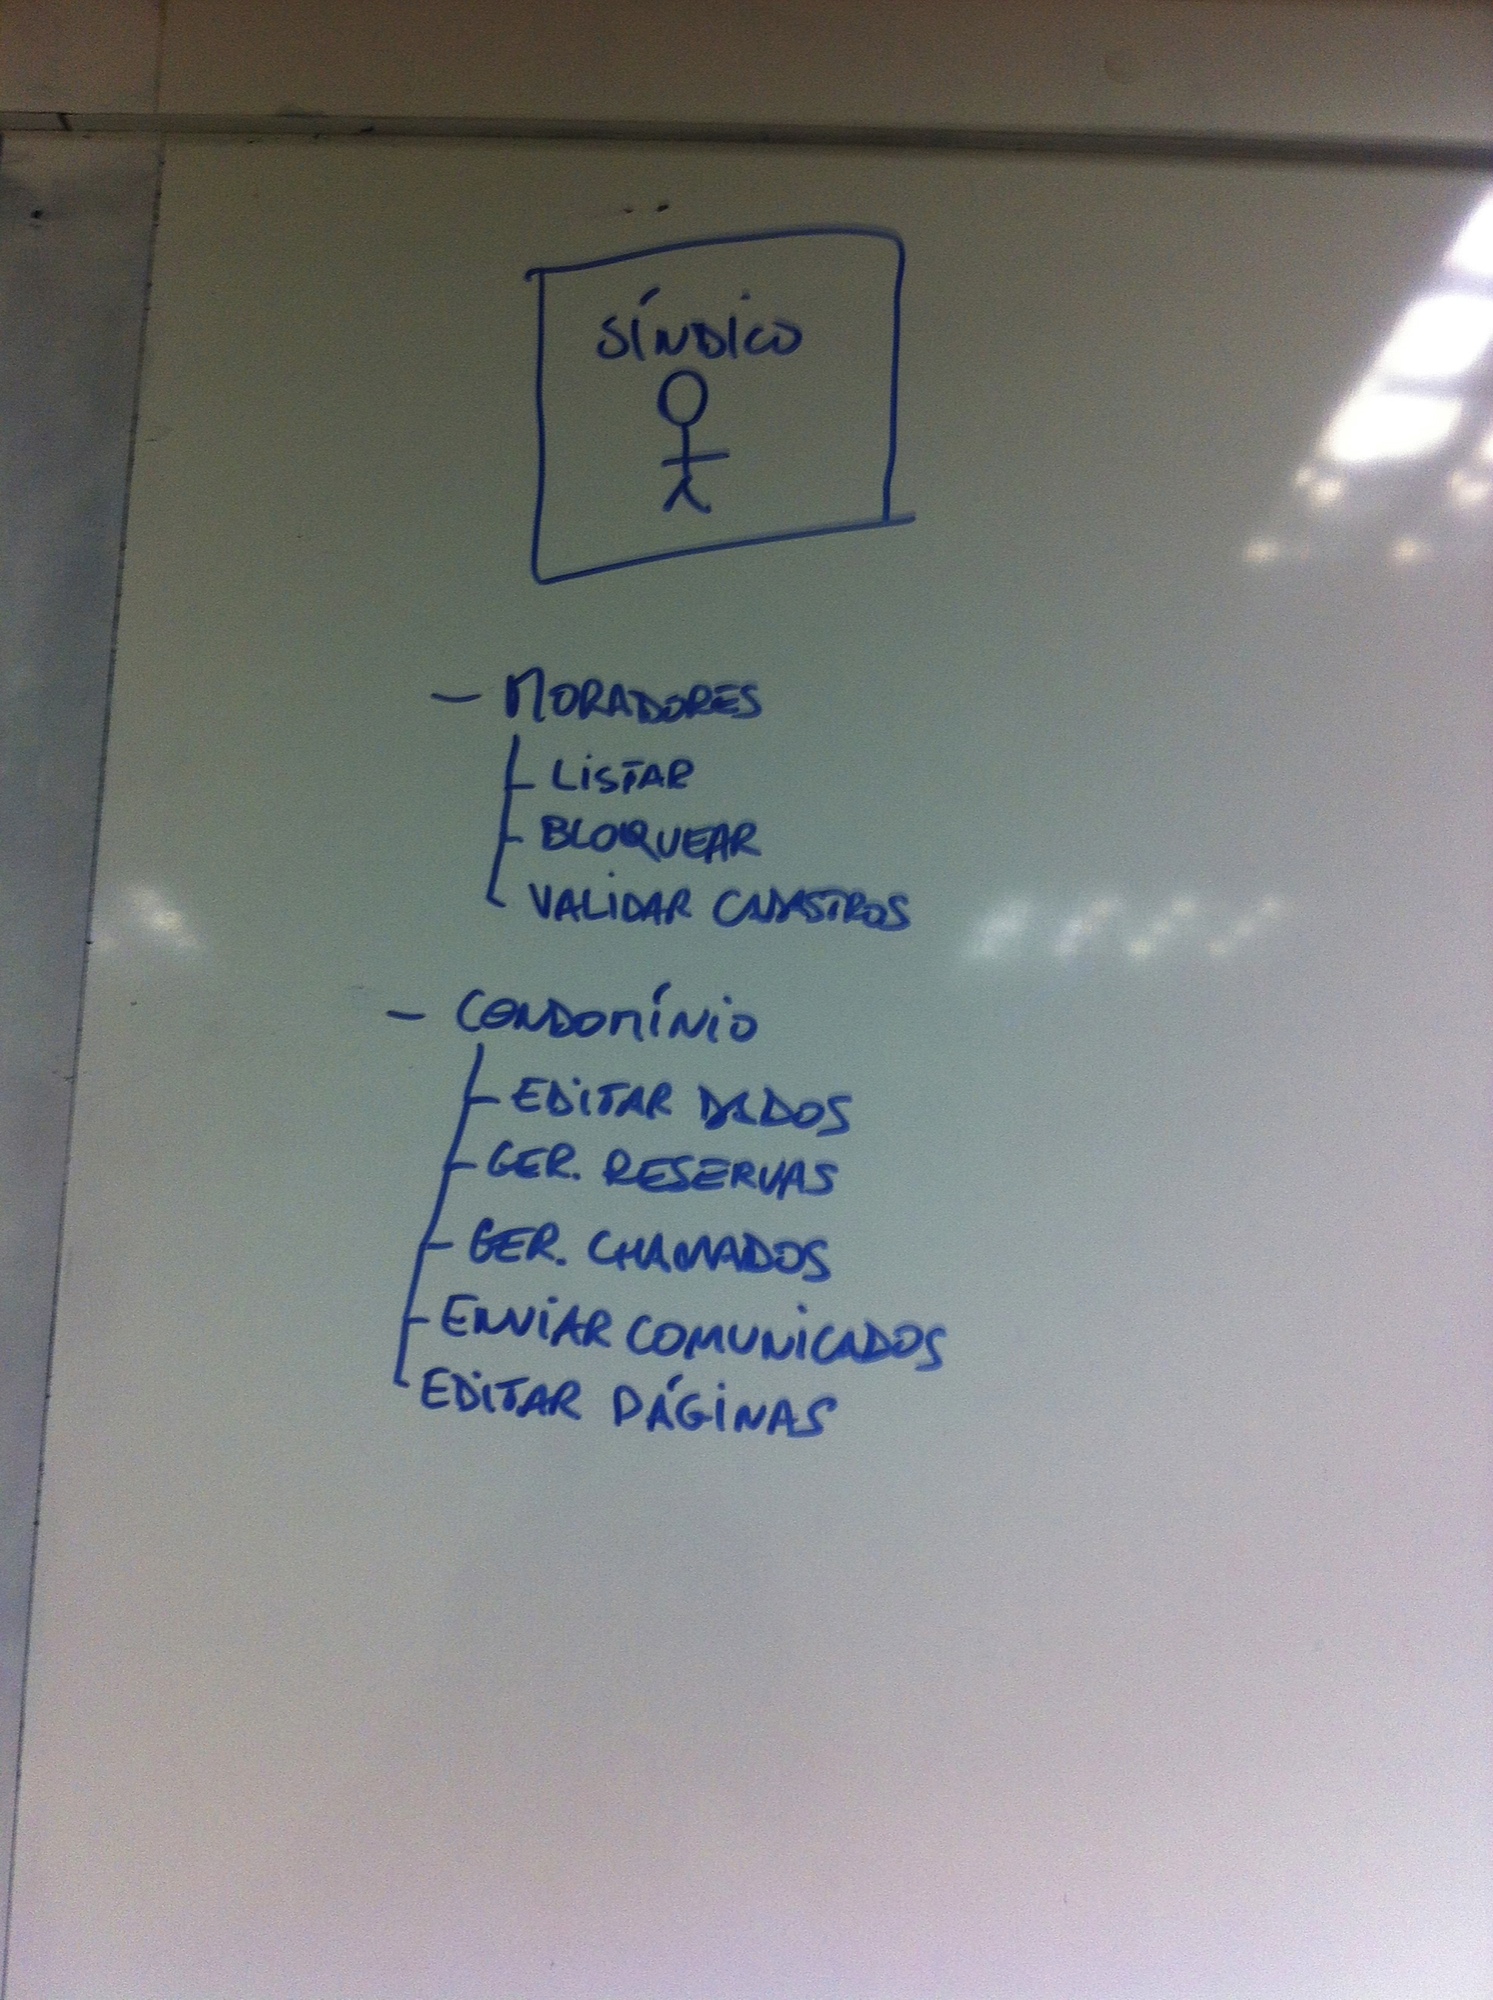 SÍNDICO
- MORADORES
LISTAR
BLOQUEAR
VALIDAR CADASTROS
- CONDOMÍNIO
EDITAR DADOS
GER. RESERVAS
GER. CHAMADOS
ENVIAR COMUNICADOS
EDITAR PÁGINAS